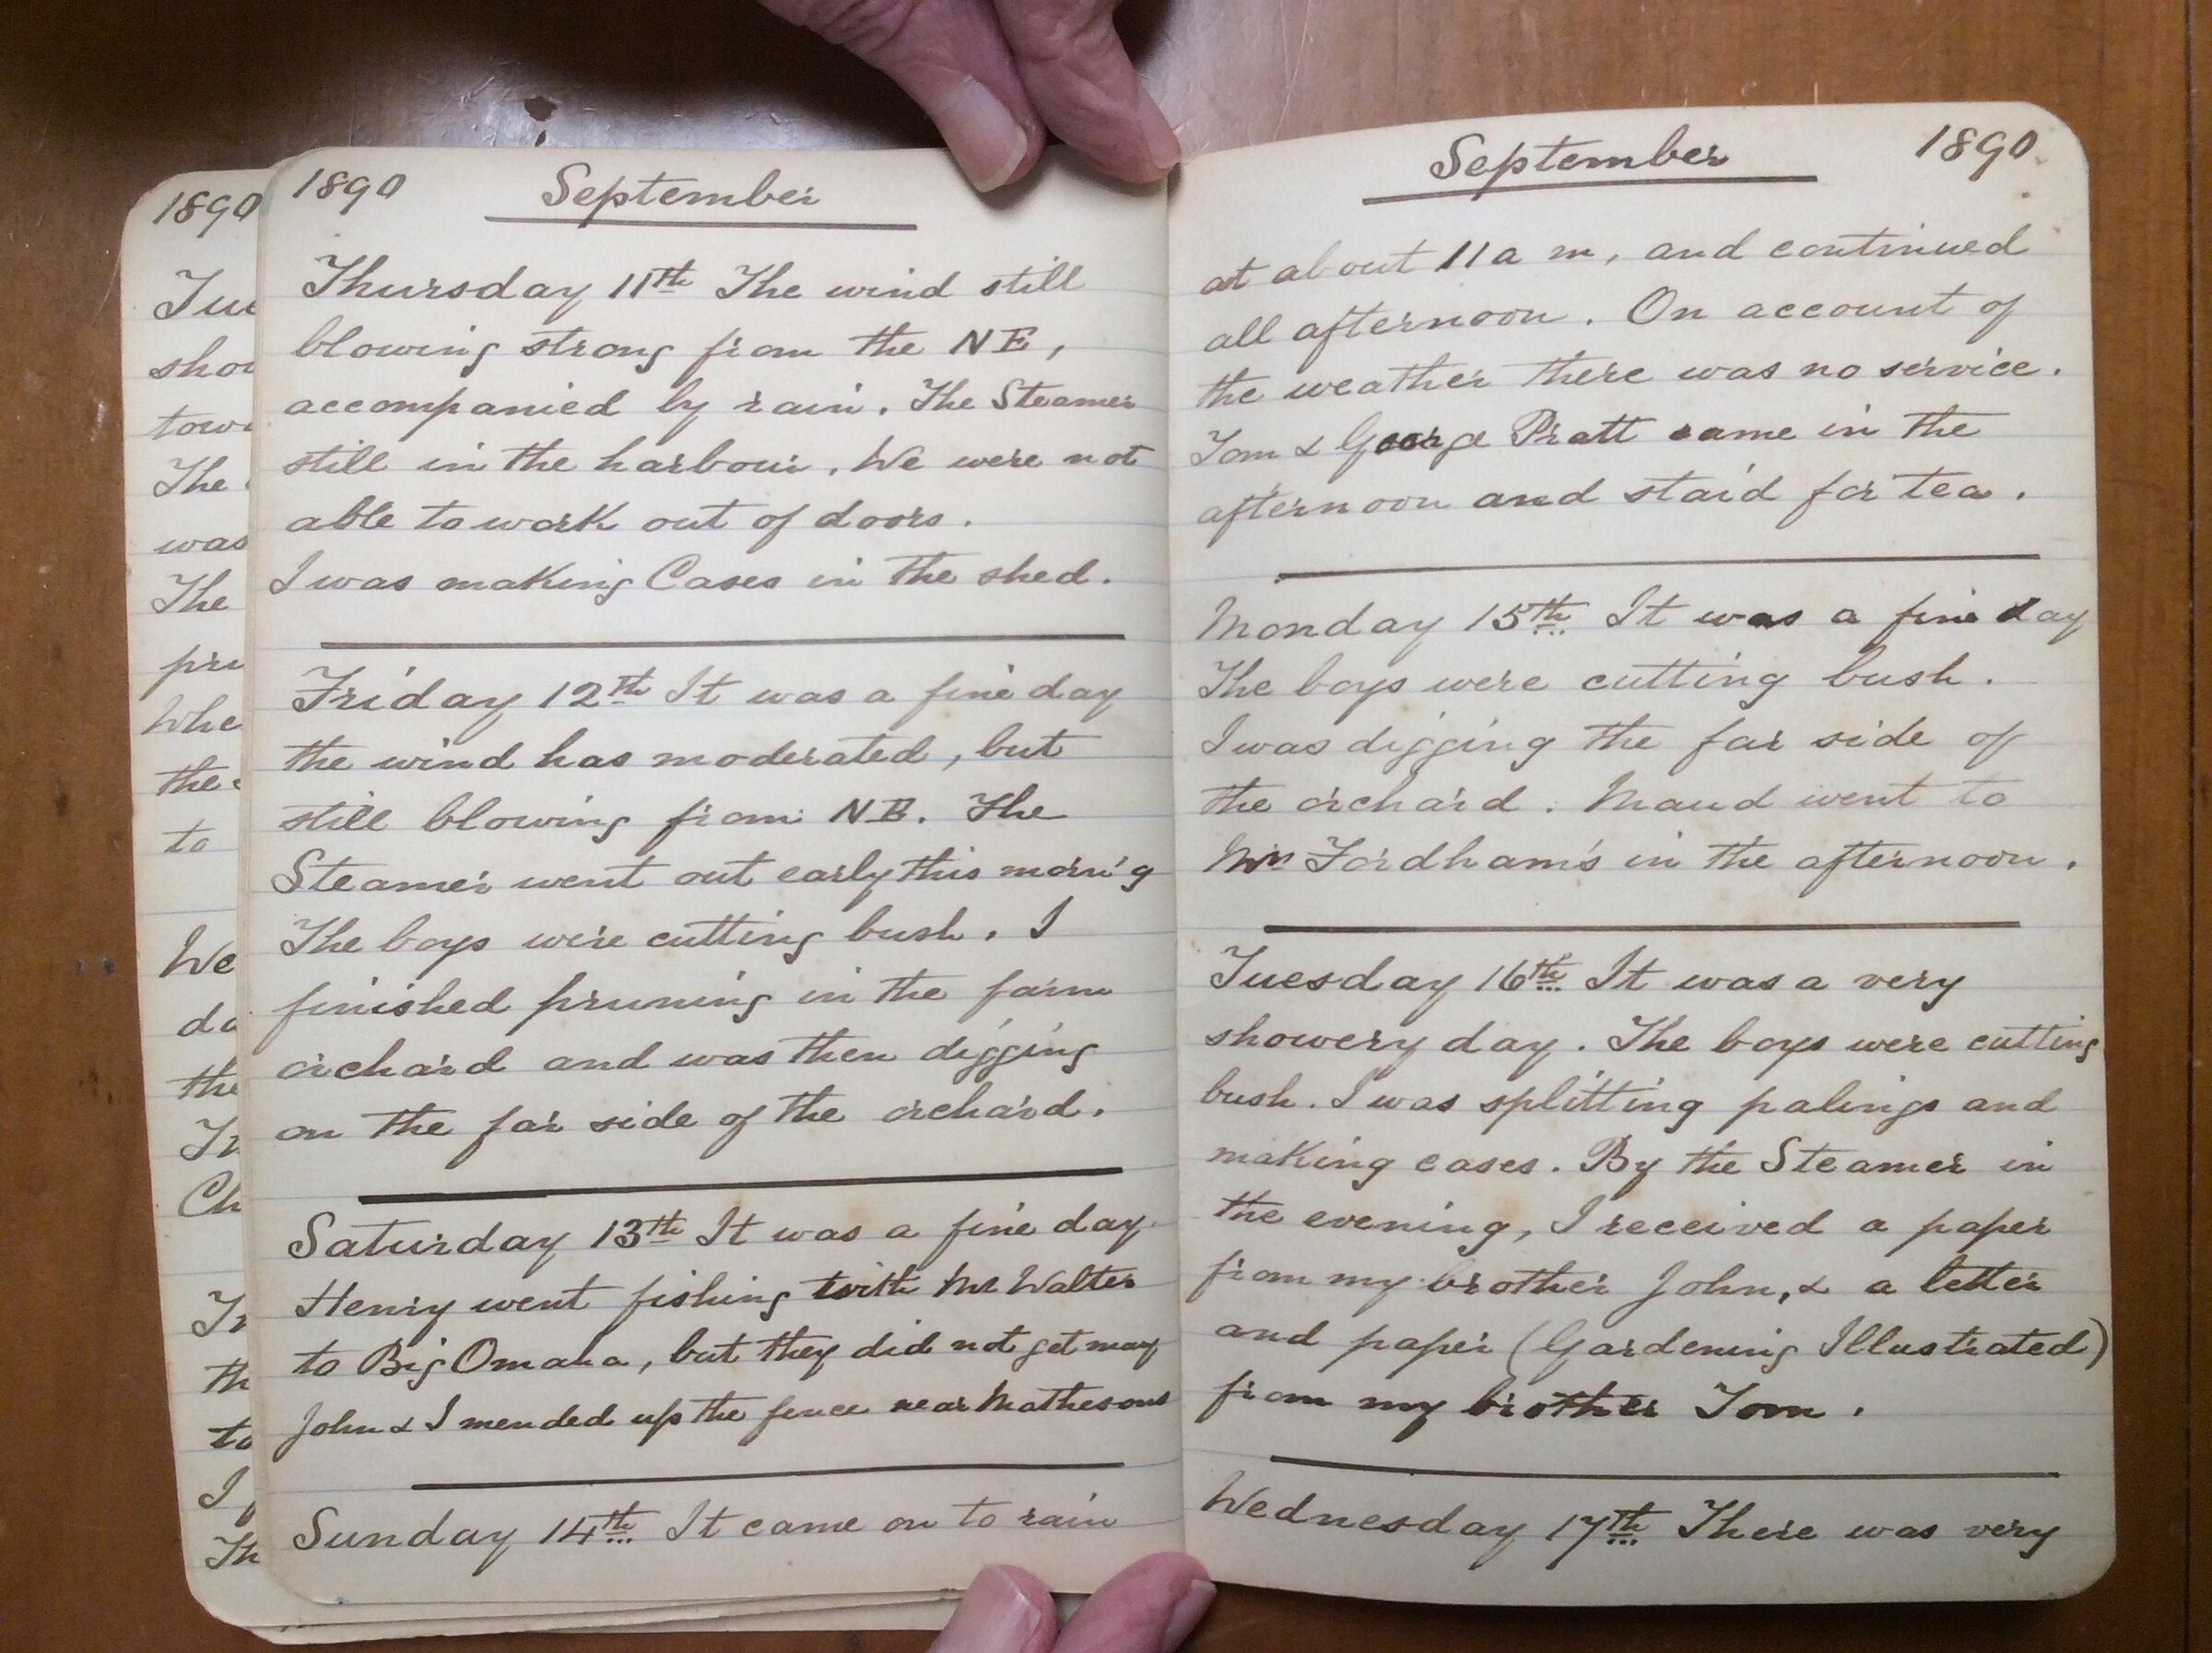 1890 September
Thursday 11th The wind still
blowing strong from the NE,
accompanied by rain. The Steamer
still in the harbour. We were not
able to work out of doors.
I was making Cases in the shed.
Friday 12th It was a fine day
the wind has moderated, but
still blowing from NE. The
Steamer went out early this morn'g
The boys were cutting bush. I
finished pruning in the farm
orchard and was then digging
on the far side of the orchard.
Saturday 13th It was a fine day.
Henry went fishing with Mr Walter
to Big Omaha, but they did not get many
John & I mended up the fence near Mathesons
Sunday 14th It came on to rain
September 1890.
at about 11 a m, and continued
all afternoon. On account of
the weather there was no service.
Tom & George Pratt came in the
afternoon and staid for tea.
Monday 15th It was a fine day
The boys were cutting bush.
I was digging the far side of
the orchard. Maud went to
Mrs Fordham's in the afternoon.
Tuesday 16th It was a very
showery day. The boys were cutting
bush. I was splitting palings and
making cases. By the Steamer in
the evening, I received a paper
from my brother John, & a letter
and paper (Gardening Illustrated)
from my brother Tom.
Wednesday 17th There was very
1890
The
was
The
to
We